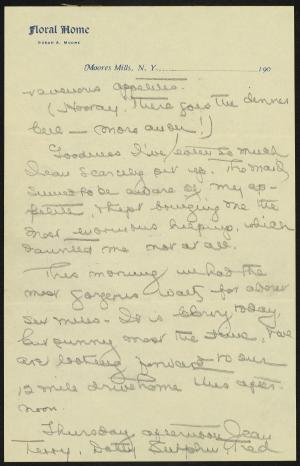 Floral Home
Susan A. Moore
Moores Mills, N. Y. 190
ravenous appetites.
(Hooray, there goes the dinner
bell — more anon!)
Goodness I've eaten so much
I can scarcely get up. The maid
seemed to be aware of my ap-
petite, & kept bringing me the
most enormous helping, which
daunted me not at all.
This morning we had the
most gorgeous walk for about
six miles. It is blowy today,
but sunny most the time, & we
are looking forward to our
12 mile drive home this after-
noon.
Thursday afternoon Jean
Terry, Dotty Sutphin, Fred